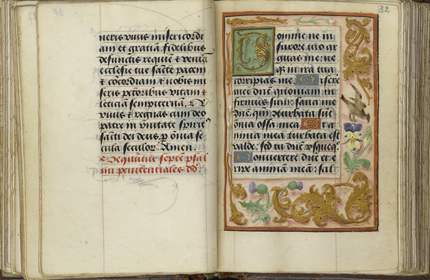 neris viuis misericordi
am et gratiā fidelibus
defunctis requiē & veniā
ecclesie tue sancte pacem
& cōcordiam & nobis mi
seris pctoribus vitam et
leticiā sempiternā. Qui
viuis & regnas cum deo
patre in vnitate spirit9
sancti deus. p oīa se
cula seculor. Amen.
Sequūtur septē psal
mi penitenciales.
32
Domine ne in
furore tuo ar
guas me: ne
qȝ in ira tua
corripias me. Misere
mei dne quoniam in
firmus sum: sana me
dne qm cōturbata sūt
omnia ossa mea. Et a
nima mea turbata est
valde: sed tu dne vsqȝquo
Conuertere dne et e
ripe animā meā: sal